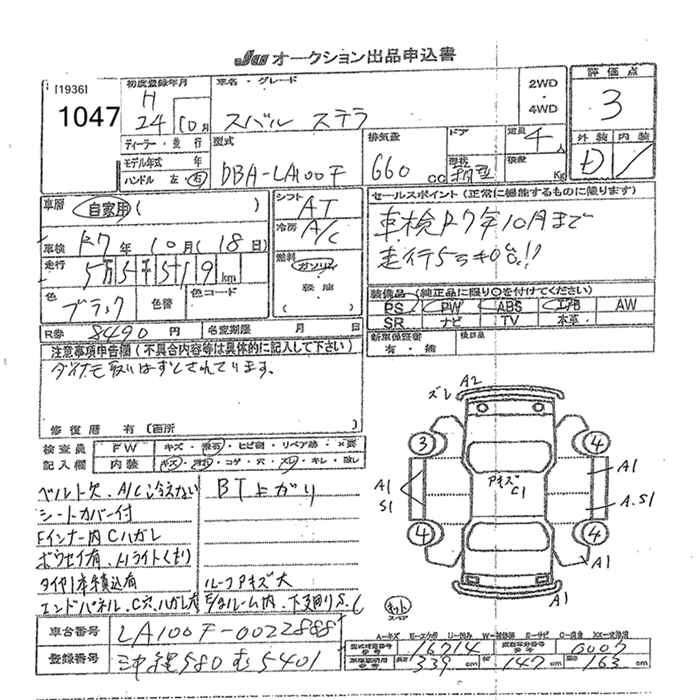 JU オークション出品申込書
[1936]
1047
初度登録年月
H
24 10月
車名・グレード
スバル ステラ
2WD
・
4WD
評価点
3
ディーラー・並行
モデル年式 年
ハンドル 左・右
型式
DBA-LA100F
排気量
660 cc
ドア
定員 4 人
積載 Kg
外装 内装
D
車歴 自家用 ( )
シフト AT
冷房 A/C
セールスポイント (正常に機能するものに限ります)
車検R7年10月まで
車検 R7 年 10 月 (18 日)
走行 5万5千519 km
燃料 ガソリン
軽油
色 ブラック 色替 色コード
装備品 (純正品に限り○を付けてください)
PS PW ABS エアB AW
SR ナビ TV 本革
R券 8490 円 名変期限 月 日
新車保証書
有・無
注意事項申告欄 (不具合内容等は具体的に記入して下さい)
ダイナモ取りはずしされています。
修復歴 有 [箇所
検査員 FW キズ・飛石・ヒビ割・リペア跡・×要
記入欄 内装 キズ・汚れ・コゲ・穴・スレ・キレ・
ベルト欠、A/C冷えない
BT上がり
シートカバー付
Fインナー内Cハガレ
ボウセイ有、Hライトくもり
タイヤ1本積込有
ルーフアキズ大
エンドパネル、C穴、ハガレ大
下廻りS、C
ズレ A2
3 4
アキズ
C1
A1
S1
A1
A、S1
4 4
A1
A1
キット
スペア
A-キズ E-エクボ U-凹み W-補修跡 S-サビ C-腐食 XX-交換済
車台番号 LA100F-0022888
型式指定番号 16714 類別区分番号 0007
登録番号 沖縄580む5401
長さ 339 cm 幅 147 cm 高さ 163 cm